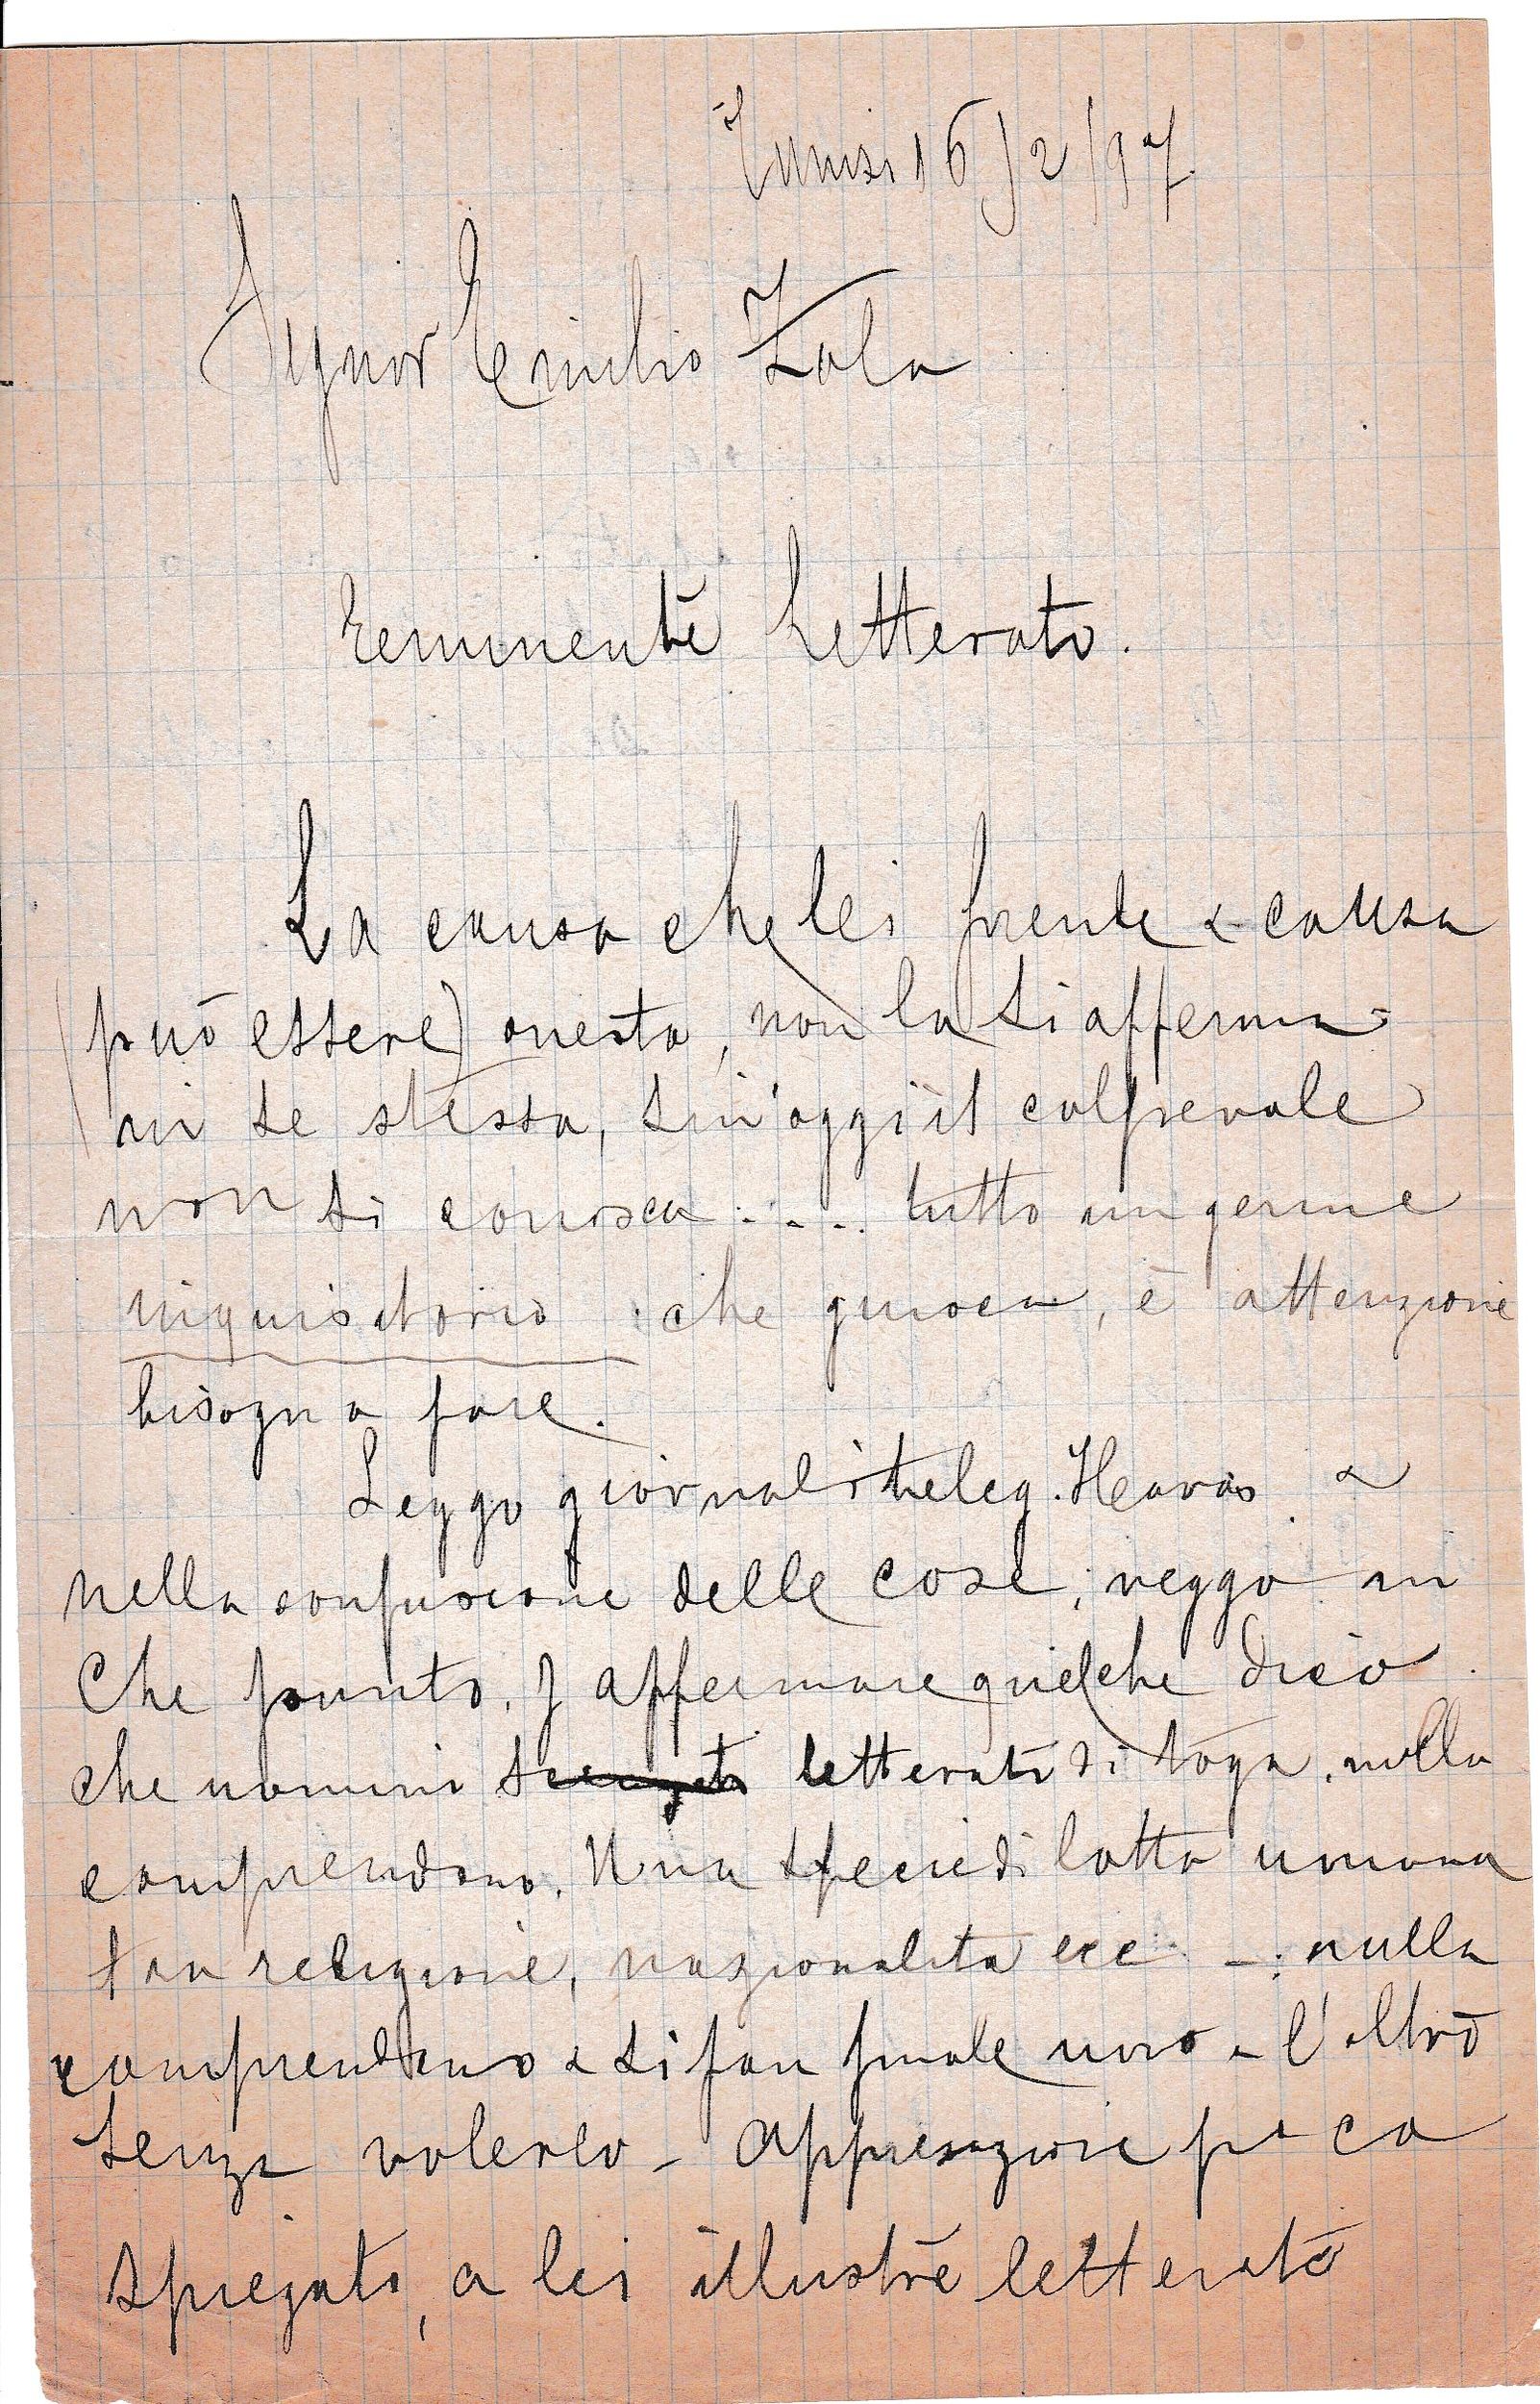 Tunisi 16/2/97.
Signor Emilio Zola
Eminente Letterato.
La causa che lei prende è causa
(può essere) onesta, non la si afferma
in se stessa, sin'oggi il colpevole
non si conosca .... tutto un germe
inquisitorio che guisca, è attenzione
bisogna fare.
Leggo giornali teleg. Havas e
nella confusione delle cose, veggo in
che punto. J affermare quel che dico
che uomini letterati di toga, nulla
comprendono. Una specie di lotta umana
fra religione, nazionalità ecc - nulla
comprendano e si fan female uno e l'altro
senza volerlo - Appresazione poca
spiegato, a lei illustre letterato